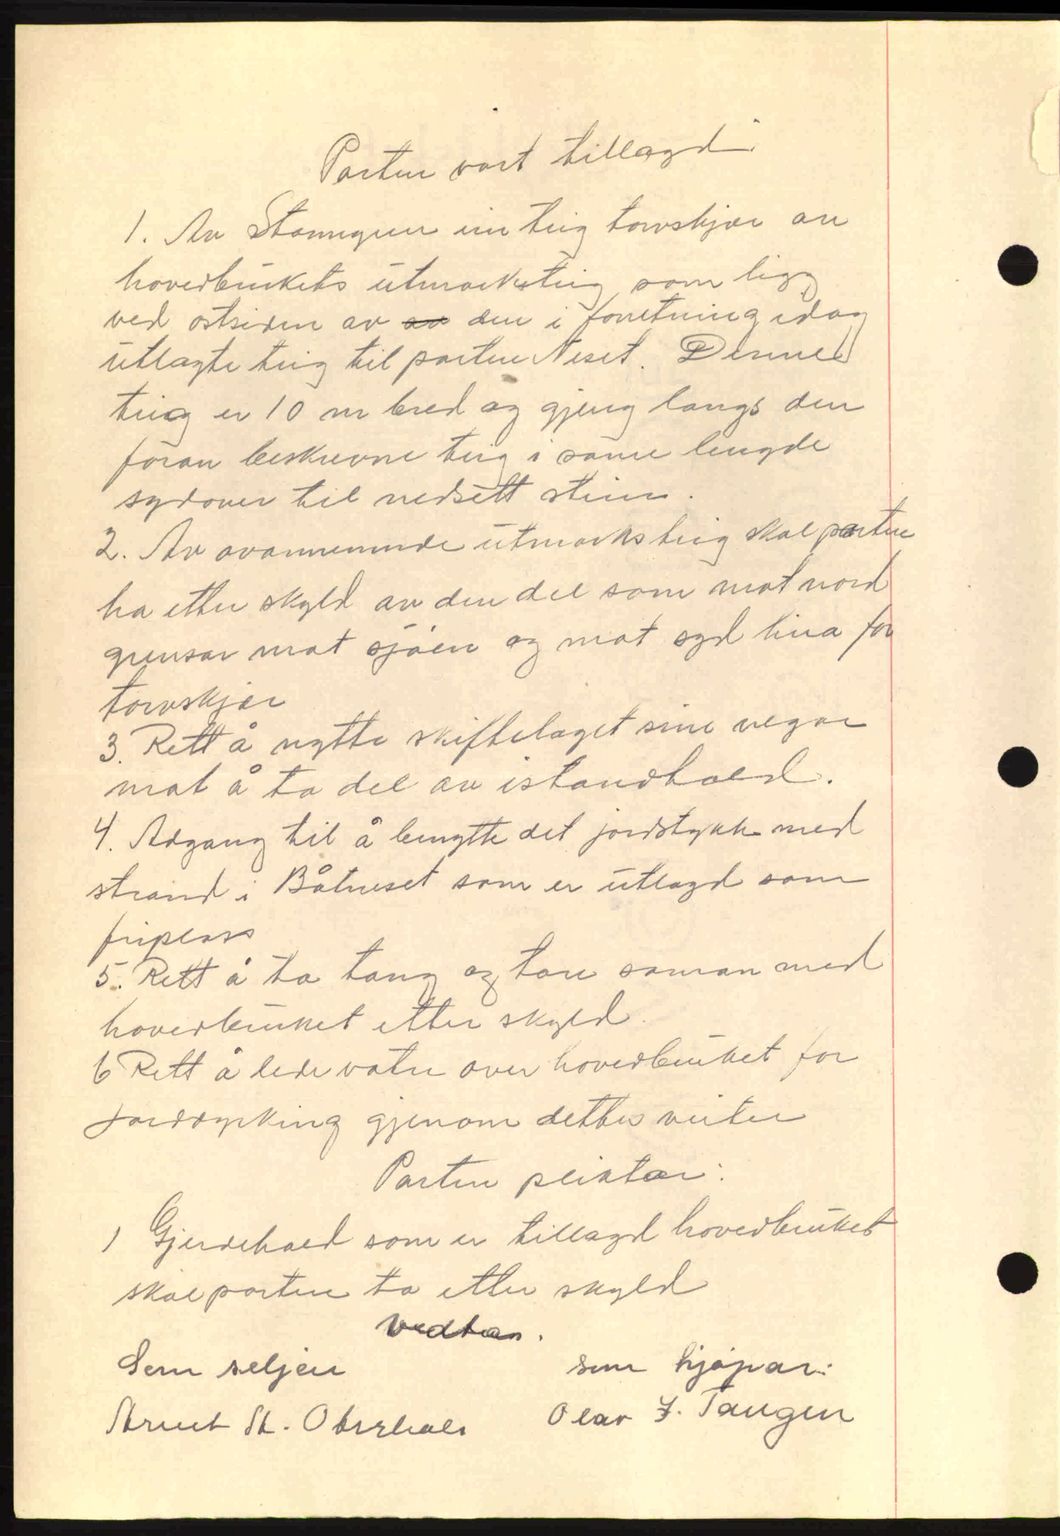 Parten vart tillagd:
1. Av Stamngren ein teig torvskjær av
hovedbrukets utmarksteig som ligg
ved ostsiden av den i forretning idag
utlagte teig til parten Neset. Denne
teig er 10 m bred og gjeng langs den
foran beskrevne teig i same lengde
sydover til nedsett stein.
2. Av ovannemnde utmarksteig skal parten
ha etter skyld av den del som mot nord
grensar mot sjøen og mot syd lina for
torvskjær
3. Rett å nytte skiftelaget sine vegar
mot å ta del av istandhald.
4. Adgang til å benytte det jordstykke med
strand i Båtneset som er utlagd som
friplass
5. Rett å ta tang og tare saman med
hovedbruket etter skyld.
6 Rett å lede vatn over hovedbruket for
jorddyrking gjenom dettes veiter
Parten pliktar:
1 Gjerdehald som er tillagd hovedbruket
skal parten ta etter skyld
Vedtas.
Som seljer som kjøpar:
St. Olav J. Taugen